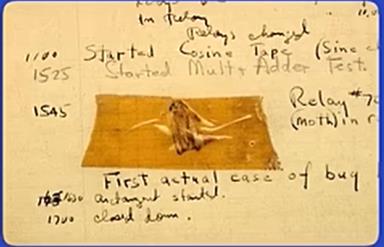 in relay
Relays changed
1100 Started Cosine Tape (Sine c
1525 Started Mult + Adder Test.
1545 Relay #70
(moth) in r
First actual case of bug
1630 antangent started.
1700 closed down.